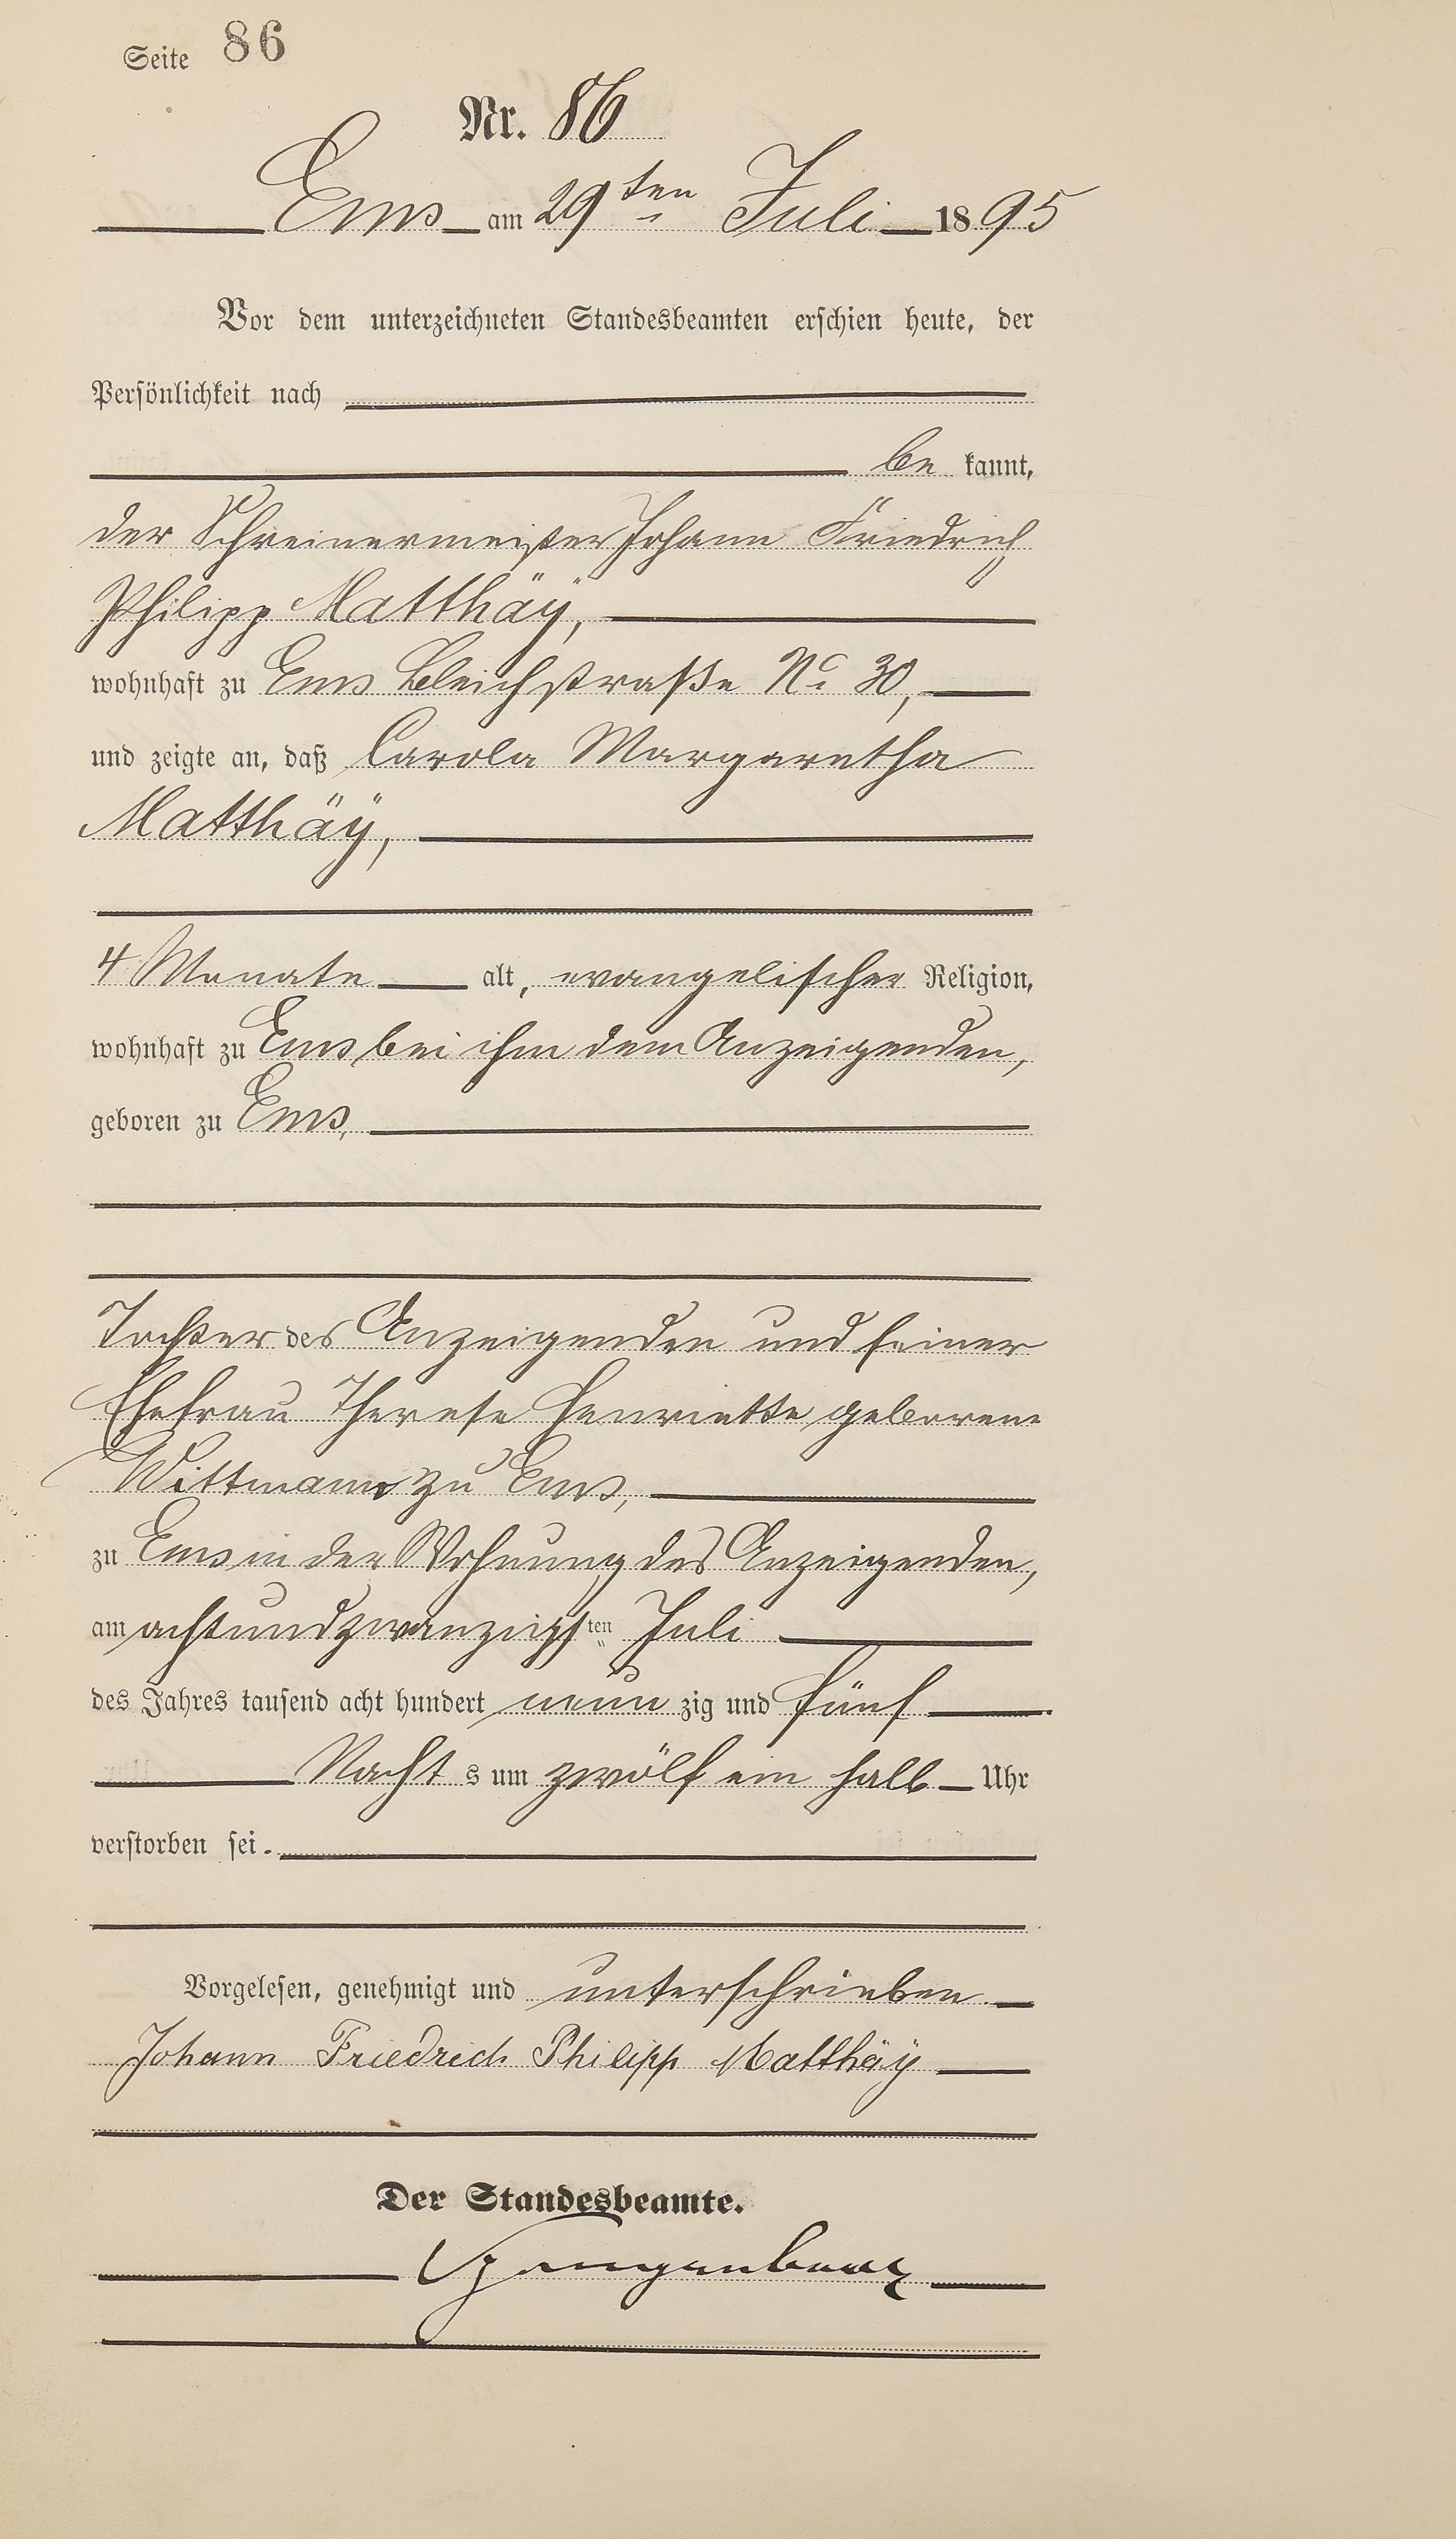 Seite 86
Nr. 86
Ems am 29ten Juli 1895
Vor dem unterzeichneten Standesbeamten erschien heute, der
Persönlichkeit nach
be kannt,
der Schreinermeister Johann Friedrich
Philipp Matthäÿ,
wohnhaft zu Ems Bleichstraße No 30,
und zeigte an, daß Carola Margaretha
Matthäÿ,
4 Monate alt, evangelischer Religion,
wohnhaft zu Ems bei ihm dem Anzeigenden,
geboren zu Ems,
Tochter des Anzeigenden und seiner
Ehefrau Therese Henriette geborene
Wittmann zu Ems,
zu Ems in der Wohnung des Anzeigenden,
am achtundzwanzigsten Juli
des Jahres tausend acht hundert neun zig und fünf
Nacht s um zwölf ein halb Uhr
verstorben sei.
Vorgelesen, genehmigt und unterschrieben
Johann Friedrich Philipp Matthäÿ
Der Standesbeamte.